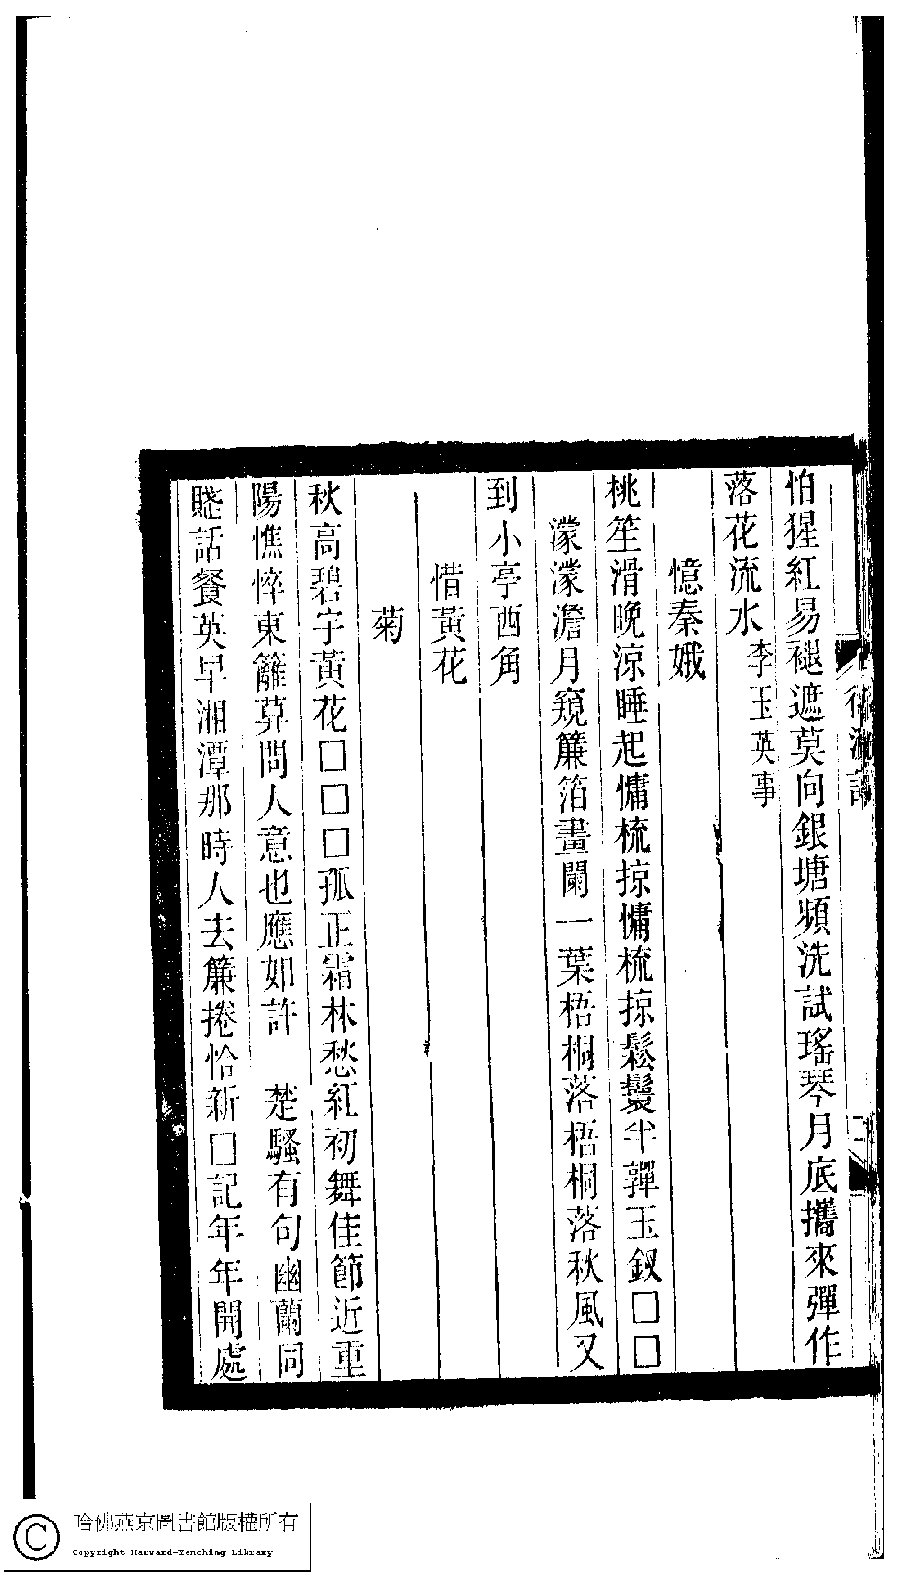 怕猩紅易褪遮莫向銀塘頻洗試瑤琴月底攜來彈作
落花流水李玉英事
憶秦娥
桃笙滑晚涼睡起慵梳掠慵梳掠鬆鬟半嚲玉釵□□
濛濛澹月窺簾箔畫闌一葉梧桐落梧桐落秋風又
到小亭西角
惜黃花
菊
秋高碧宇黃花□□□孤正霜林愁紅初舞佳節近重
陽憔悴東籬莫問人意也應如許　楚騷有句幽蘭同
賤話餐英早湘潭那時人去簾捲恰新□記年年開處
哈佛燕京圖書館版權所有
Copyright Harvard-Yenching Library